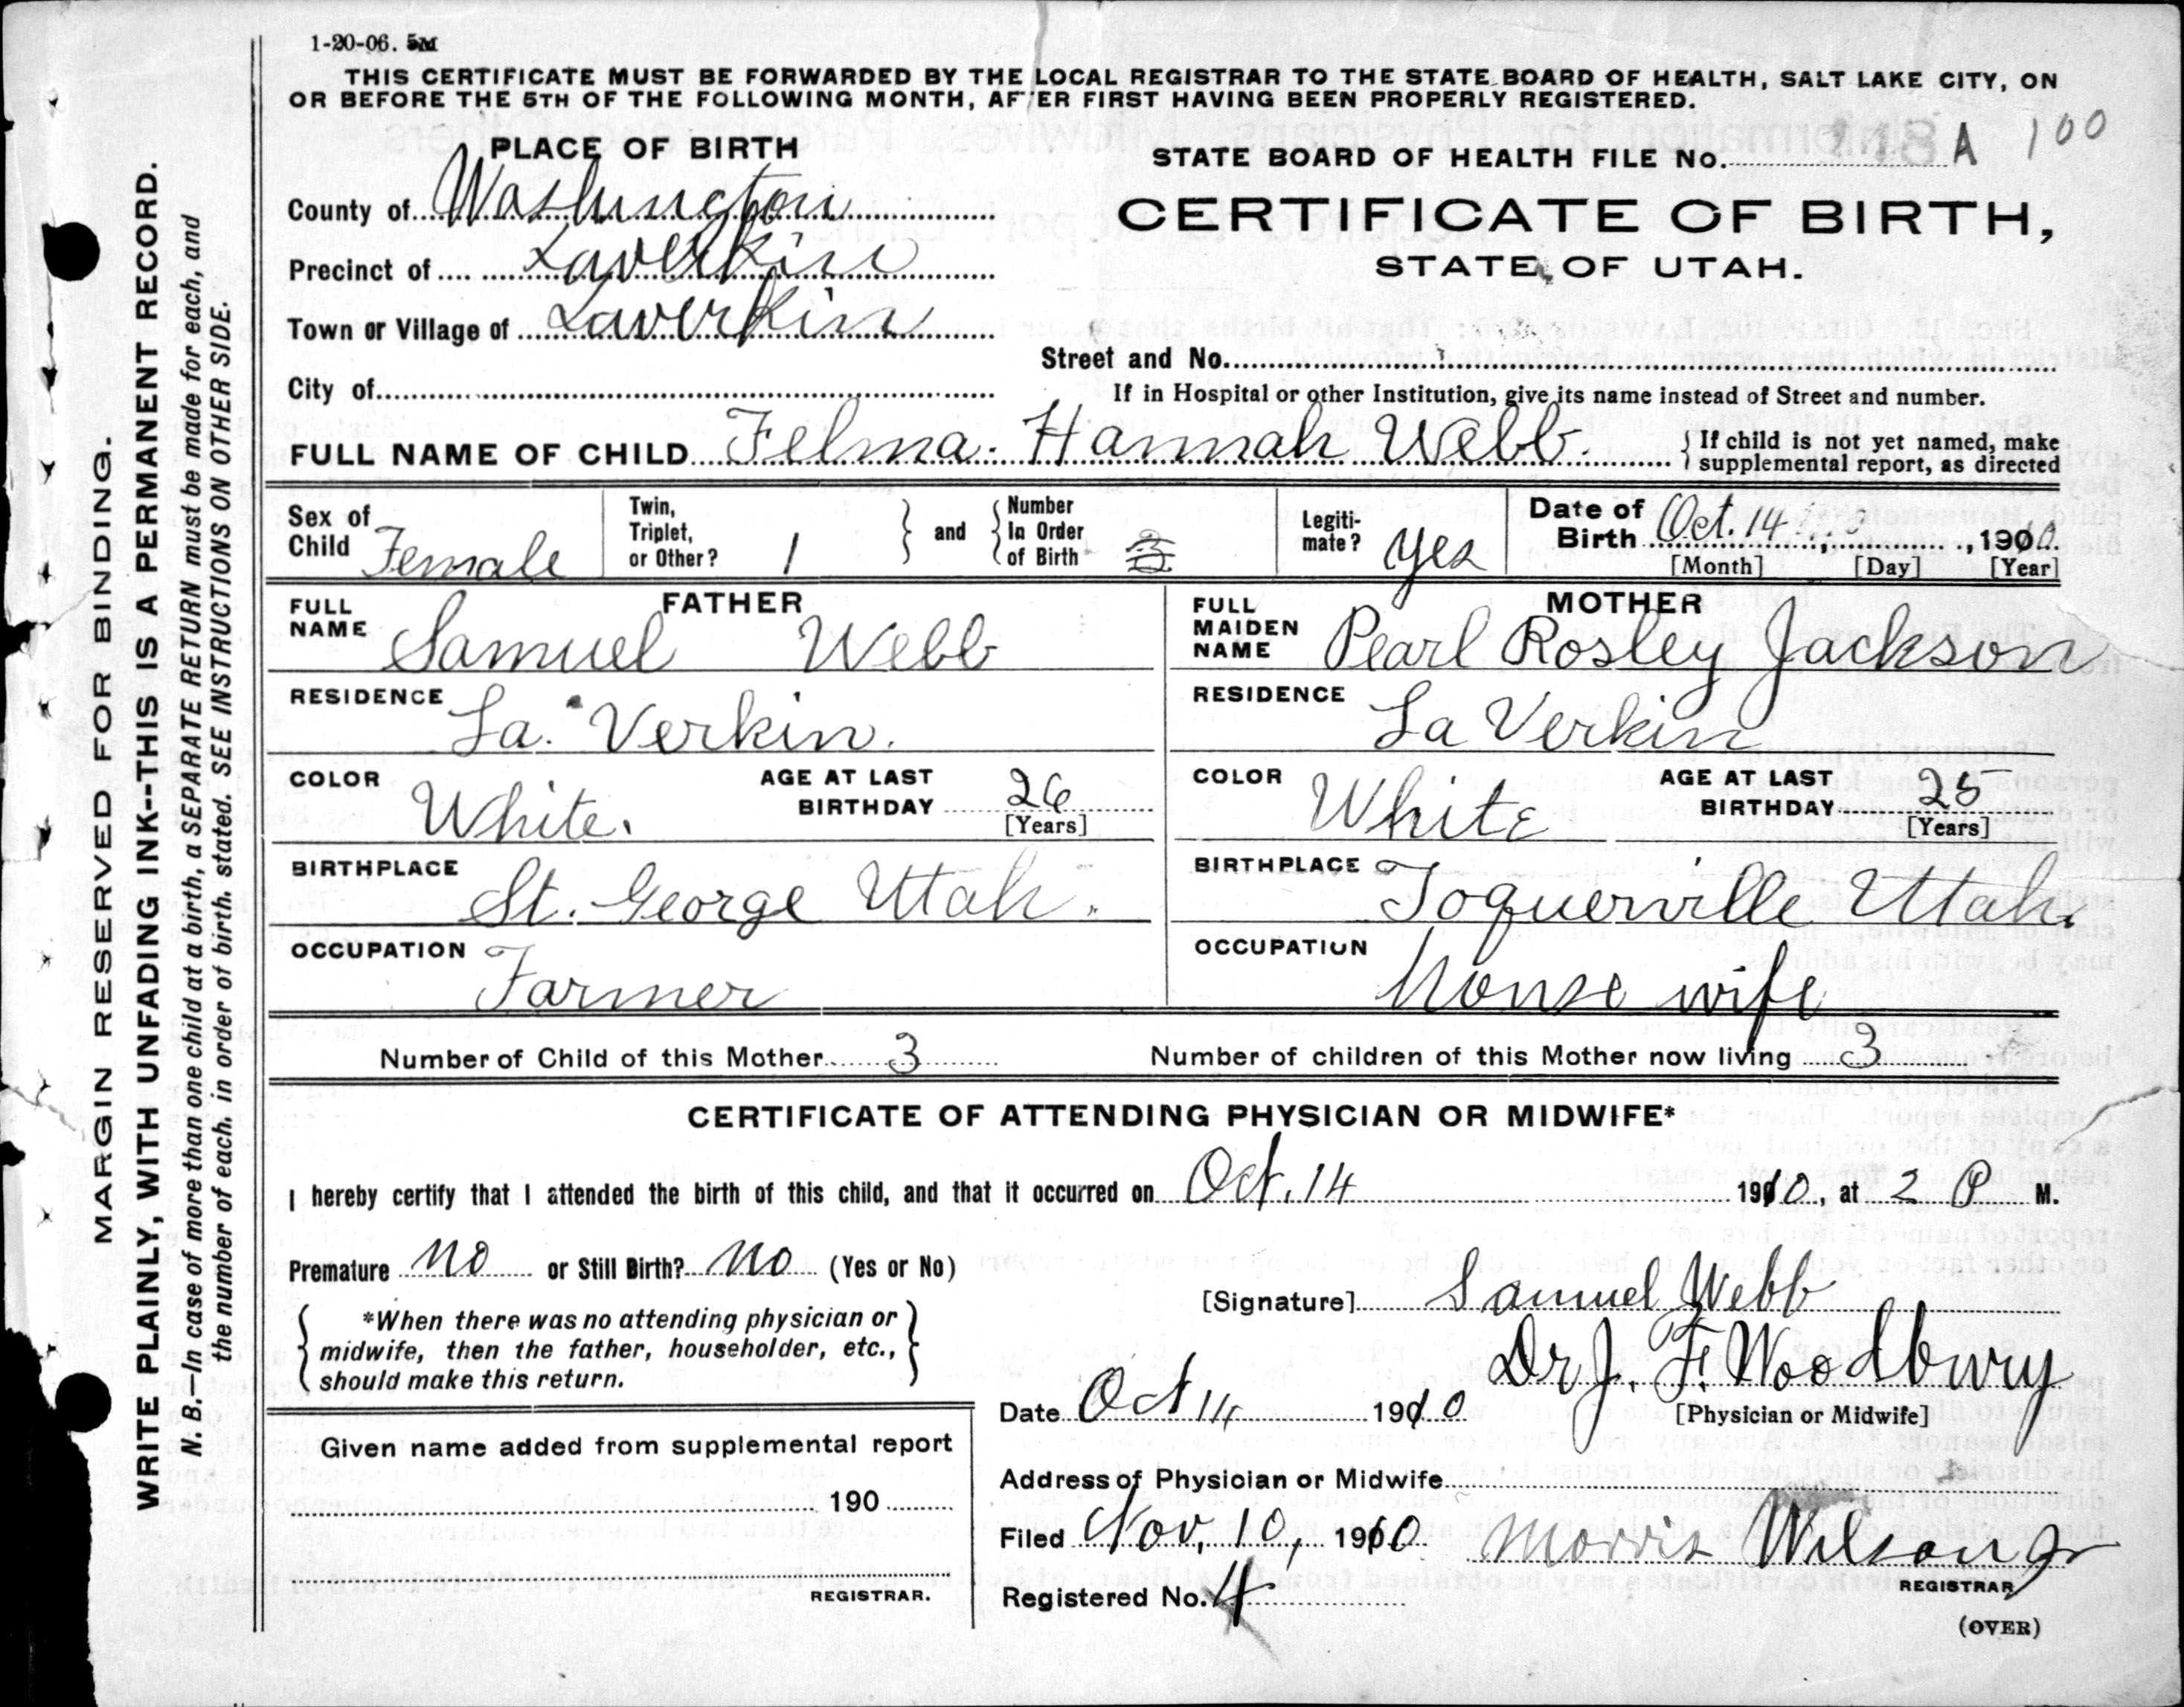 1-20-06. 5M
THIS CERTIFICATE MUST BE FORWARDED BY THE LOCAL REGISTRAR TO THE STATE BOARD OF HEALTH, SALT LAKE CITY, ON
OR BEFORE THE 5TH OF THE FOLLOWING MONTH, AFTER FIRST HAVING BEEN PROPERLY REGISTERED.
MARGIN RESERVED FOR BINDING.
WRITE PLAINLY, WITH UNFADING INK--THIS IS A PERMANENT RECORD.
N. B.--In case of more than one child at a birth, a SEPARATE RETURN must be made for each, and
the number of each, in order of birth, stated. SEE INSTRUCTIONS ON OTHER SIDE.
PLACE OF BIRTH
County of Washington
Precinct of Laverkin
Town or Village of Laverkin
City of
STATE BOARD OF HEALTH FILE No. A 100
CERTIFICATE OF BIRTH,
STATE OF UTAH.
Street and No.
If in Hospital or other Institution, give its name instead of Street and number.
FULL NAME OF CHILD Felma Hannah Webb. { If child is not yet named, make
supplemental report, as directed
Sex of Child Female
Twin, Triplet, or Other? 1 } and { Number In Order of Birth 3
Legiti-mate? Yes
Date of Birth Oct. 14, 1910
[Month] [Day] [Year]
FATHER
FULL NAME Samuel Webb
RESIDENCE La Verkin.
COLOR White. AGE AT LAST BIRTHDAY 26 [Years]
BIRTHPLACE St. George Utah.
OCCUPATION Farmer
MOTHER
FULL MAIDEN NAME Pearl Rosley Jackson
RESIDENCE La Verkin
COLOR White AGE AT LAST BIRTHDAY 25 [Years]
BIRTHPLACE Toquerville Utah.
OCCUPATION house wife
Number of Child of this Mother 3 Number of children of this Mother now living 3
CERTIFICATE OF ATTENDING PHYSICIAN OR MIDWIFE*
I hereby certify that I attended the birth of this child, and that it occurred on Oct. 14 1910, at 2 P M.
Premature no or Still Birth? no (Yes or No)
{ *When there was no attending physician or
midwife, then the father, householder, etc.,
should make this return. }
[Signature] Samuel Webb
Dr J. F. Woodbury
[Physician or Midwife]
Date Oct 14 1910
Address of Physician or Midwife
Filed Nov. 10, 1910 Morris Wilson Jr
REGISTRAR
Registered No. 4
(OVER)
Given name added from supplemental report
190
REGISTRAR.